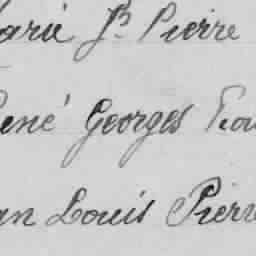 arie Jh Pierre
ené Georges
an Louis Pierre